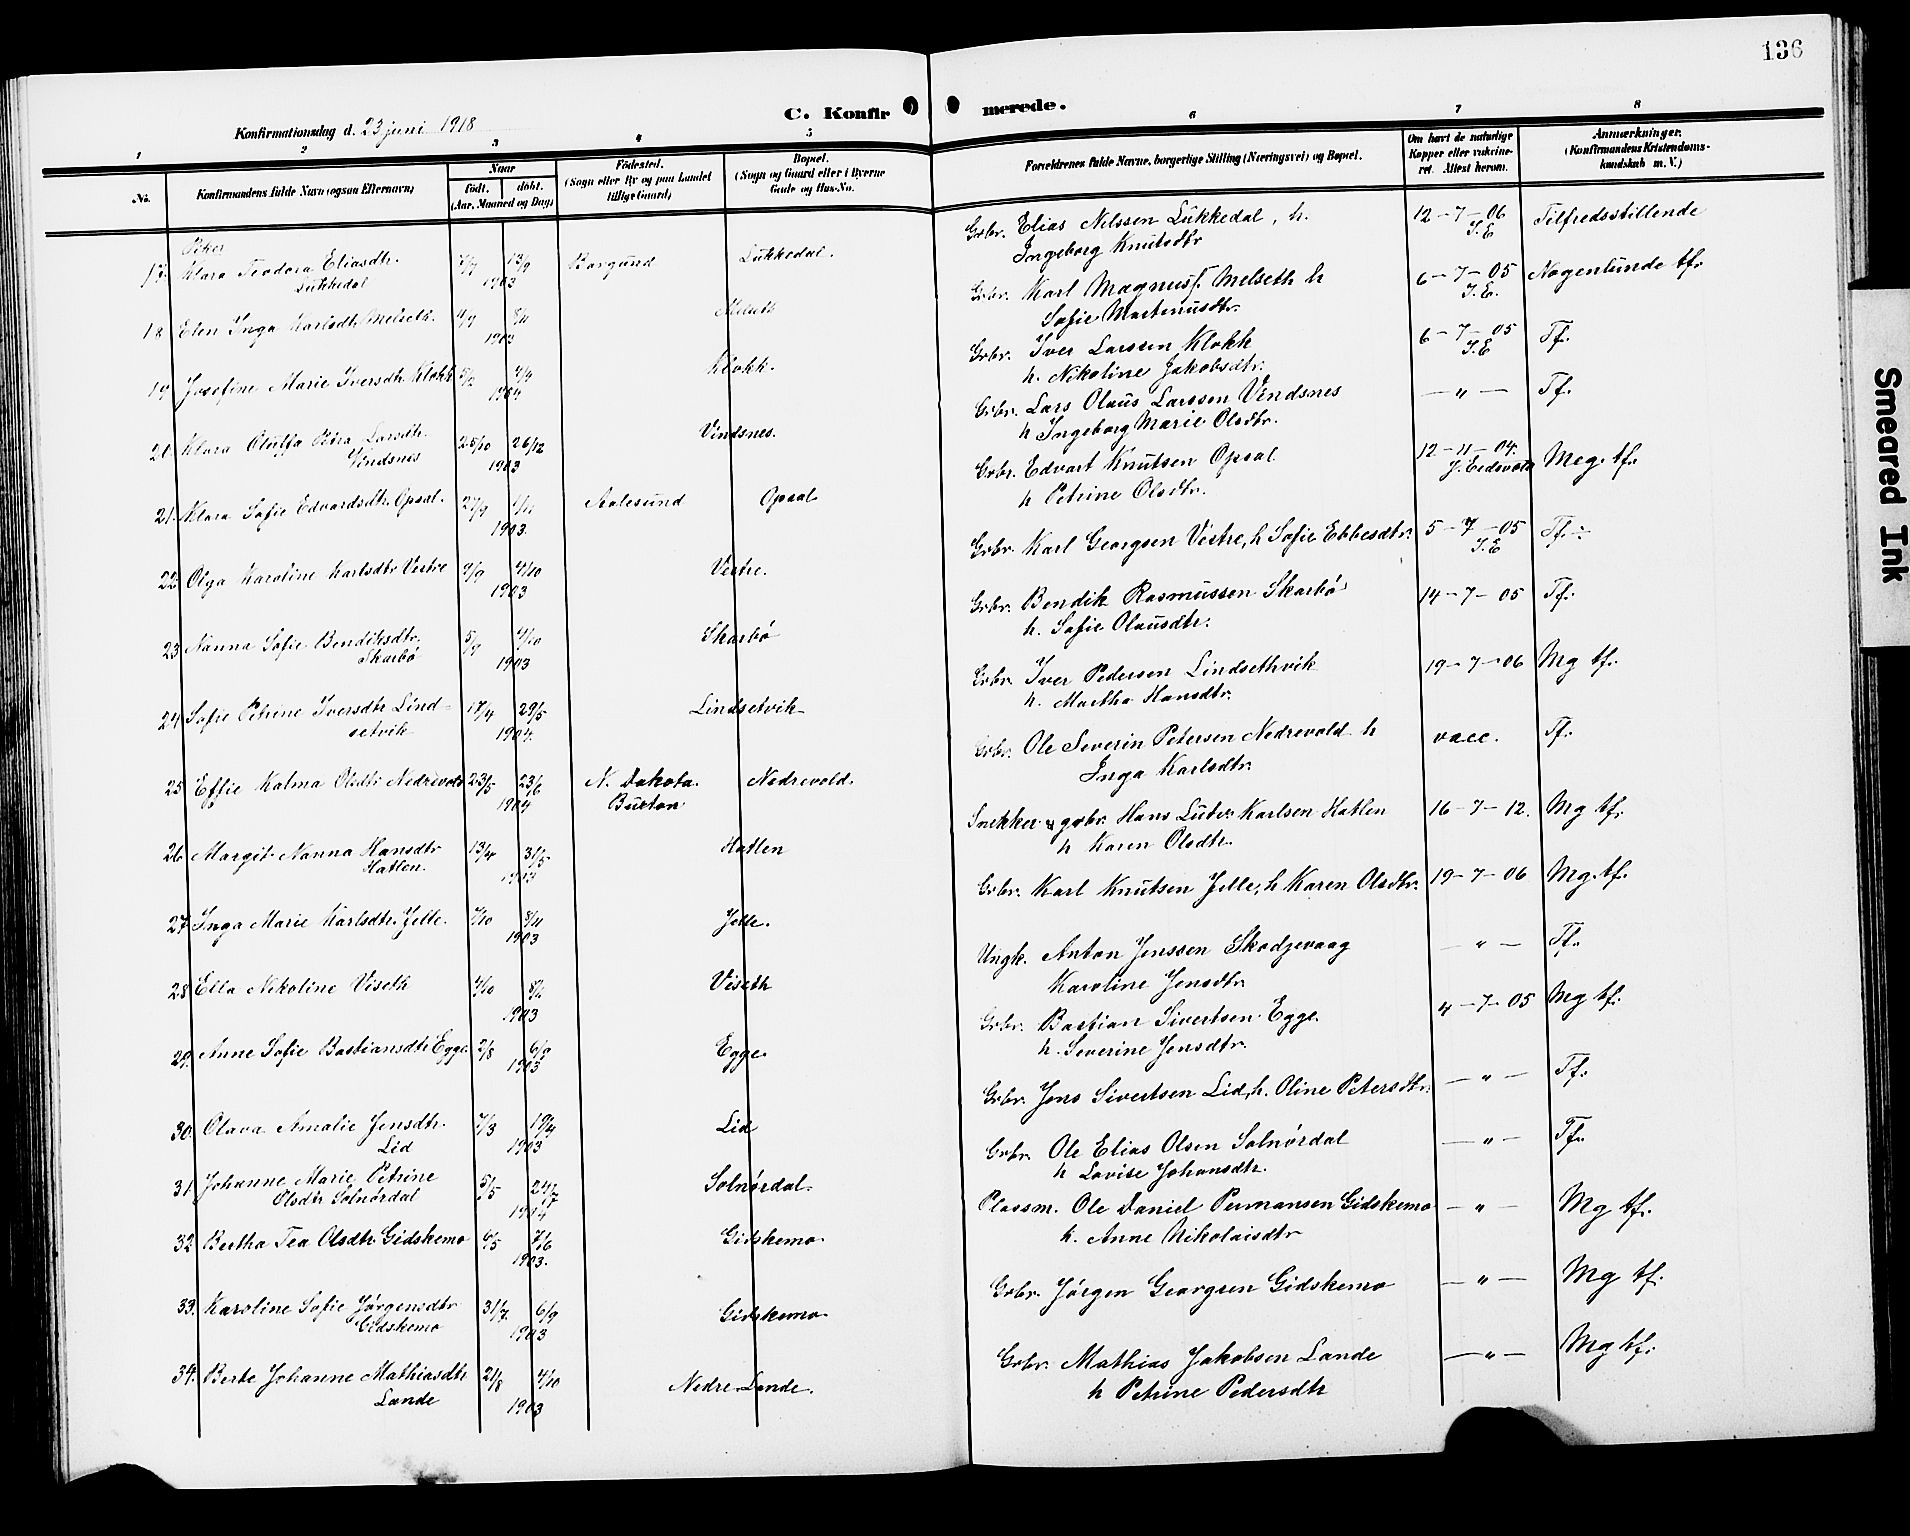 136
C. Konfirmerede.
Konfirmationsdag d. 23 juni 1918
1 2 3 4 5 6 7 8
No. Konfirmandens fulde Navn (ogsaa Efternavn)
Naar født. døbt. (Aar, Maaned og Dag)
Fødested. (Sogn eller By og paa Landet tillige Gaard)
Bopæl. (Sogn og Gaard eller i Byerne Gade og Hus-No.
Forældrenes fulde Navne, borgerlige Stilling (Næringsvei) og Bopæl.
Om havt de naturlige Kopper eller vakcineret. Attest herom.
Anmærkninger. (Konfirmandens Kristendomskundskab m. V.)
Piker
17. Klara Teodora Eliasdtr. Lukkedal 13/9 1903 Borgund Lukkedal. Grbr. Elias Nilssen Lukkedal, h. Ingeborg Knutsdtr 12-7-06 J.E Tilfredsstillende
18 Elen Inga Karlsdtr Melseth. 1903 Melseth Grbr. Karl Magnus Melseth h Sofie Martinusdtr. 6-7-05 J.E. Nogenlunde tf.
19 Josefine Marie Iversdtr Klokk 1904 Klokk. Grbr. Iver Larssen Klokk h. Nikoline Jakobsdtr. 6-7-05 J.E Tf.
20 Klara Petra Larsdtr. Vindsnes 25/10 26/12 1903 Vindsnes. Grbr. Lars Olaus Larssen Vindsnes h Ingeborg Marie Olsdtr. — " — Tf.
21. Klara Sofie Edvardsdtr. Opsal. 27/9 1903. Aalesund Opsal Grbr. Edvart Knutsen Opsal h Petrine Olsdtr. 12-11-04. Meg. tf.
22 Olga Karoline Karlsdtr Vestre 9/9 4/10 1903 Vestre. Grbr. Karl Georgsen Vestre, h Sofie Ebbesdtr. 5-7-05 J.E Tf.
23 Nanna Sofie Bendiksdtr. Skarbø 4/10 1903 Skarbø Grbr. Bendik Rasmussen Skarbø h. Sofie Olausdtr. 14-7-05 Tf.
24 Sofie Petrine Iversdtr Lindsetvik 17/4 29/5 1904. Lindsetvik Grbr. Iver Pedersen Lindsethvik h. Martha Hansdtr. 19-7-06 Mg tf.
25 Effie Kalma Olsdtr Nedrevold 23/5 23/6 1904 N. Dakota. Buxton Nedrevold. Grbr. Ole Severin Petersen Nedrevold h Inga Karlsdtr. vacc. Tf.
26 Margit Nanna Hansdtr Hatlen. 13/4 31/5 1903 Hatlen Snekker & grbr. Hans Ludv. Karlsen Hatlen h Karen Olsdtr. 16-7-12. Mg tf.
27 Inga Marie Karlsdtr. Jelle. 7/10 8/11 1903 Jelle. Grbr. Karl Knutsen Jelle, h Karen Olsdtr. 19-7-06 Mg. tf.
28 Ella Nikoline Viseth 4/10 1903 Viseth Ungk. Anton Jenssen Skodjevaag Karoline Jensdtr. — " — Tf.
29. Anne Sofie Bastiansdtr Egge 2/8 6/9 1903 Egge. Grbr. Bastian Sivertsen Egge. h. Severine Jensdtr. 4-7-05 Mg tf.
30. Olava Amalie Jensdtr. Lid 7/3 19/4 1903 Lid Grbr. Jens Sivertsen Lid, h. Oline Petersdtr. — " — Tf.
31. Johanne Marie Petrine Olsdtr Solnørdal 5/5 24/7 1904 Solnørdal. Grbr. Ole Elias Olsen Solnørdal h Lovise Johansdtr. — " — Tf.
32 Bertha Tea Olsdtr. Gidskemo 6/5 7/6 1903. Gidskemo. Plassm. Ole Daniel Permansen Gidskemo h. Anne Nikolaisdtr — " — Mg tf.
33. Karoline Sofie Jørgensdtr Gidskemo 31/7. 6/9 1903 Gidskemo. Grbr. Jørgen Georgsen Gidskemo — " — Mg tf.
34. Berte Johanne Mathiasdtr Lande 21/8 4/10 1903 Nedre Lande. Grbr. Mathias Jakobsen Lande h Petrine Pedersdtr — " — Mg tf.
Smeared Ink